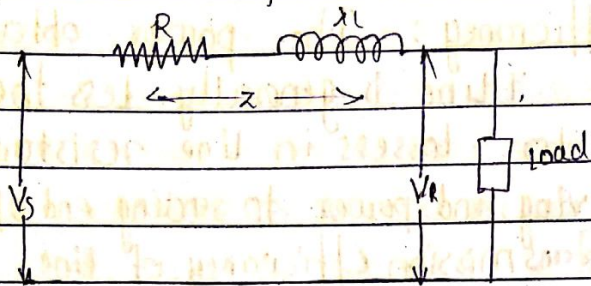 R XL
Z
Load
VS VR